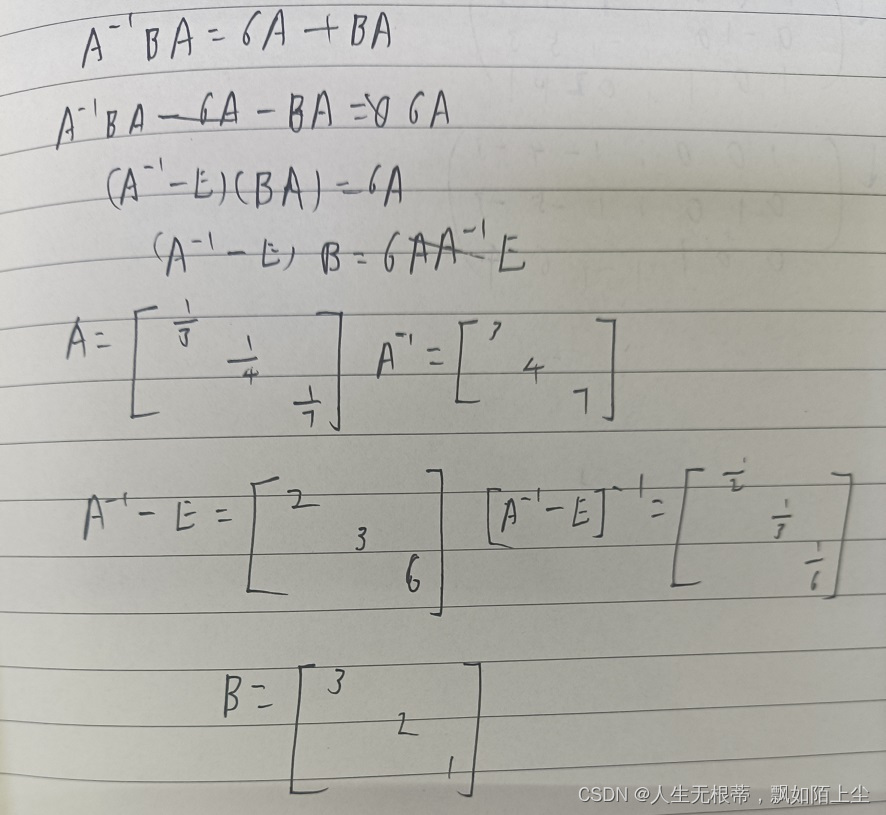 A⁻¹BA = 6A + BA
A⁻¹BA - 6A - BA = 6A
(A⁻¹ - E)(BA) = 6A
(A⁻¹ - E) B = 6AA⁻¹E
A = [ 1/3 1/4 1/7 ] A⁻¹ = [ 3 4 7 ]
A⁻¹ - E = [ 2 3 6 ] [A⁻¹ - E]⁻¹ = [ 1/2 1/3 1/6 ]
B = [ 3 2 1 ]
CSDN @人生无根蒂，飘如陌上尘